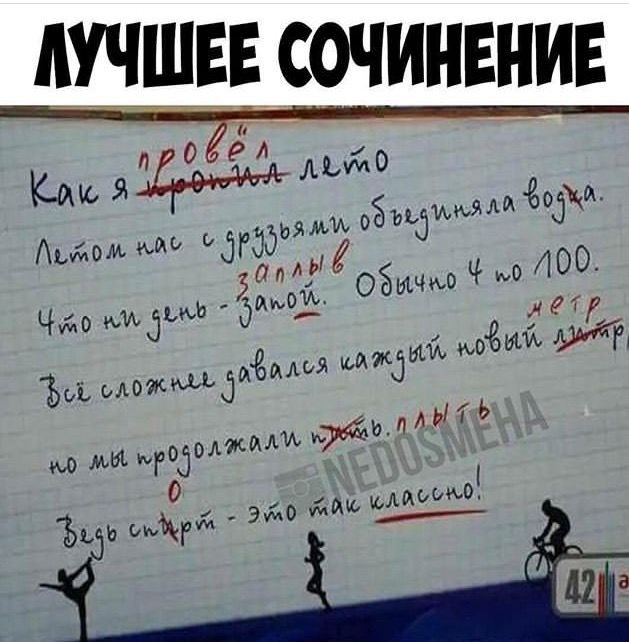 ЛУЧШЕЕ СОЧИНЕНИЕ
провёл
Как я пропил лето
Летом нас с друзьями объединяла водка.
заплыв
Что ни день - запой. Обычно 4 по 100.
метр
Всё сложнее давался каждый новый литр,
но мы продолжали пить. плыть
о
Ведь спирт - это так классно!
NEDOSMEHA
42